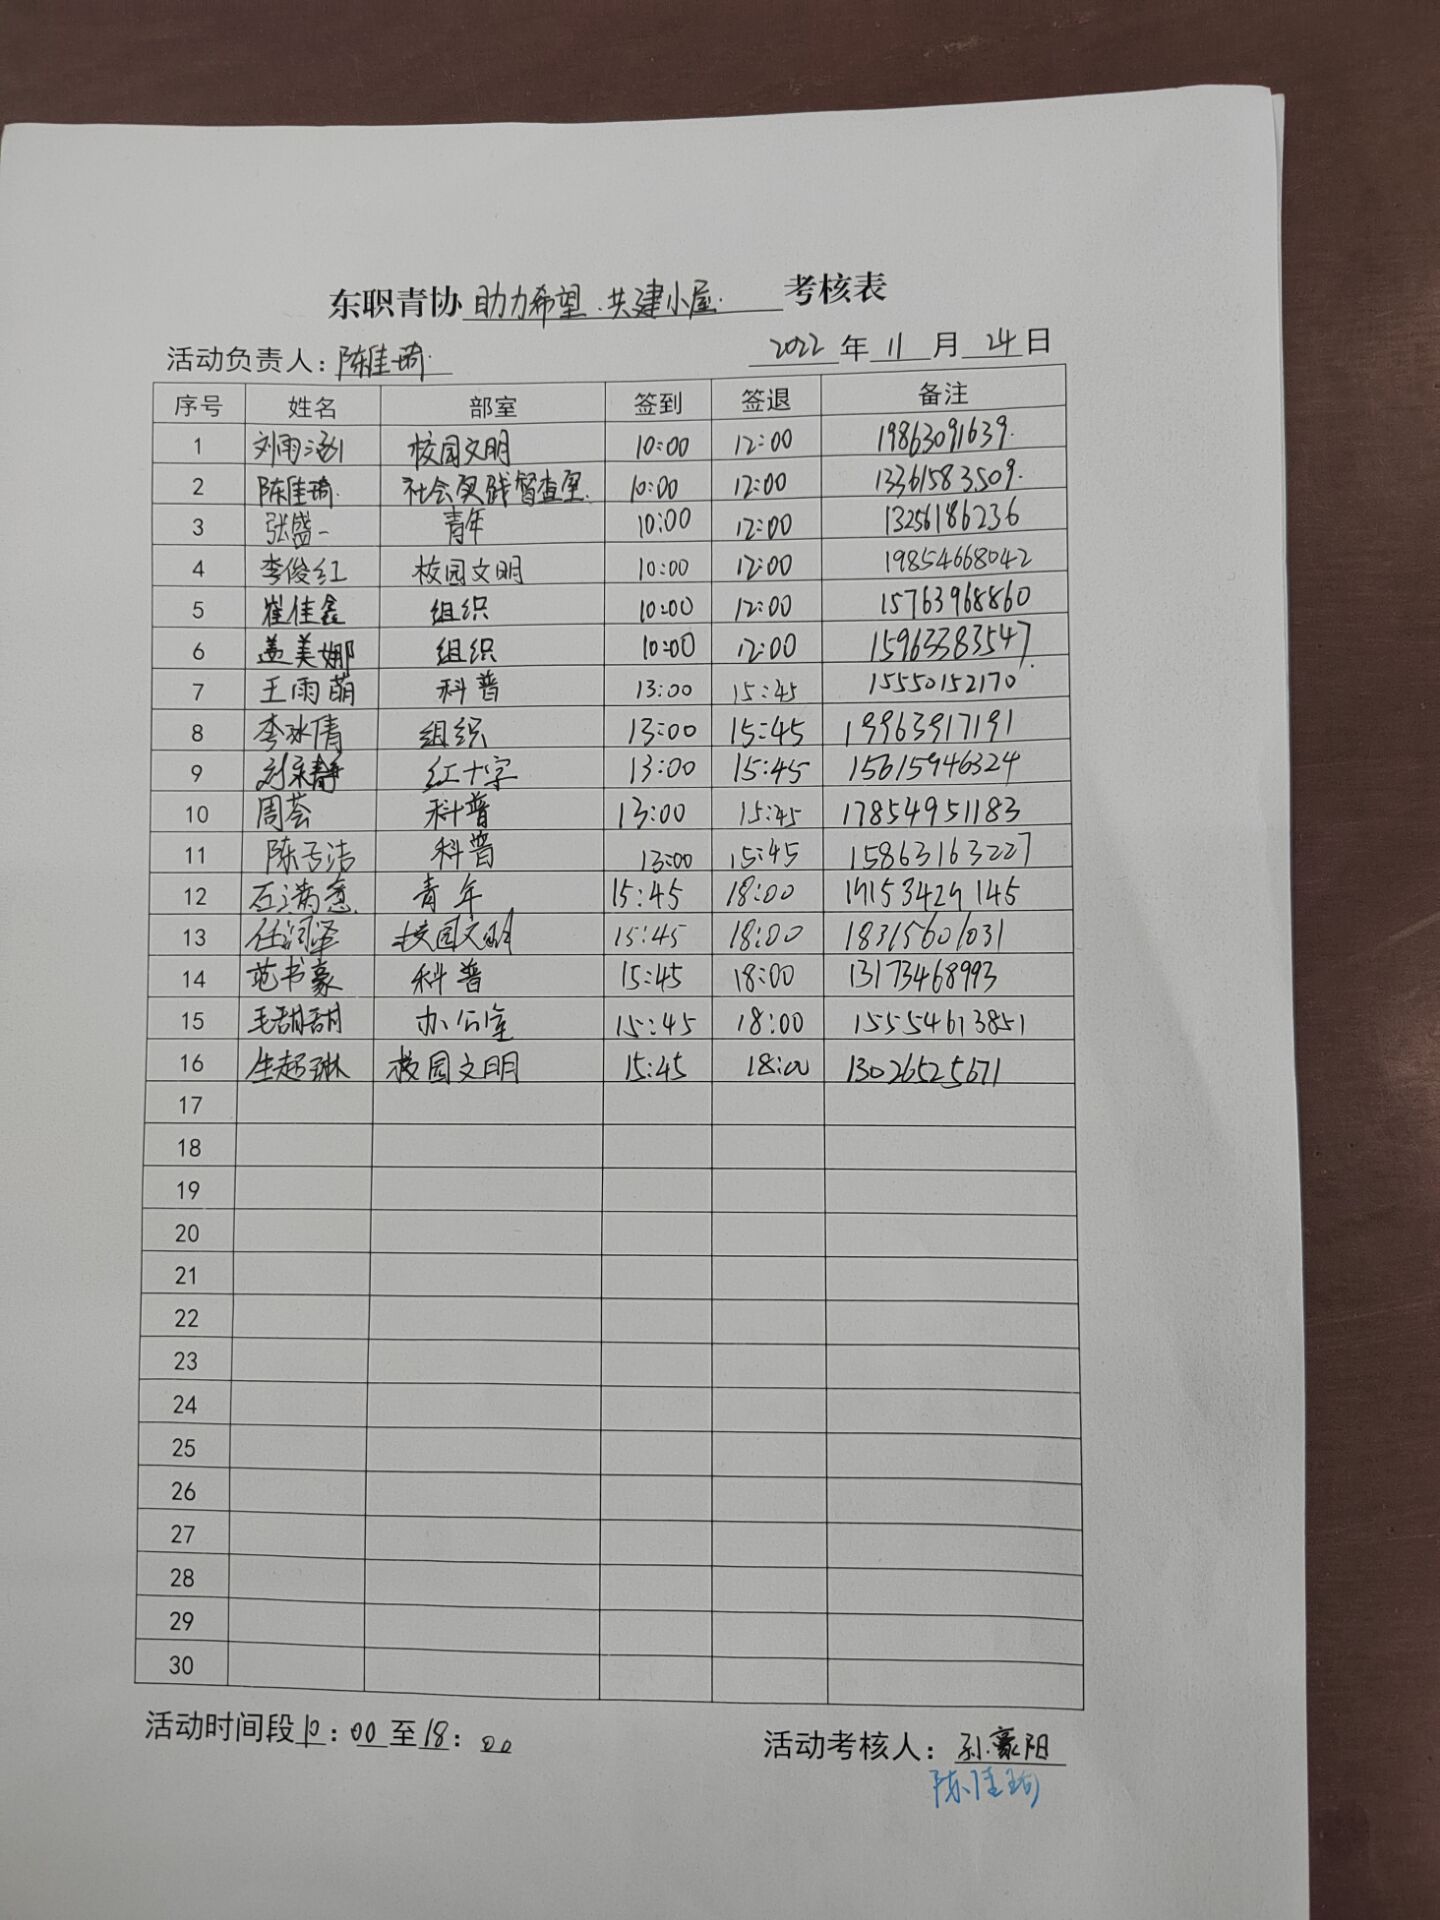 东职青协 助力希望、共建小屋 考核表
活动负责人：陈佳琦 2022 年 11 月 24 日
序号 姓名 部室 签到 签退 备注
1 刘雨涵 校园文明 10:00 12:00 19863091639
2 陈佳琦 社会实践督查室 10:00 12:00 13361583509
3 张盛一 青年 10:00 12:00 13256186236
4 李俊红 校园文明 10:00 12:00 19854668042
5 崔佳鑫 组织 10:00 12:00 15763968860
6 盖美娜 组织 10:00 12:00 15963383547
7 王雨萌 科普 13:00 15:45 15550152170
8 李冰倩 组织 13:00 15:45 19963917191
9 红十字 13:00 15:45 15615946324
10 周荟 科普 13:00 15:45 17854951183
11 科普 13:00 15:45 15863163227
12 青年 15:45 18:00
13 任润泽 校园文明 15:45 18:00 18315601031
14 范书豪 科普 15:45 18:00 13173468993
15 毛甜甜 办公室 15:45 18:00 15554613851
16 生超琳 校园文明 15:45 18:00 13026525671
17
18
19
20
21
22
23
24
25
26
27
28
29
30
活动时间段 10：00 至 18：00 活动考核人：孙豪阳